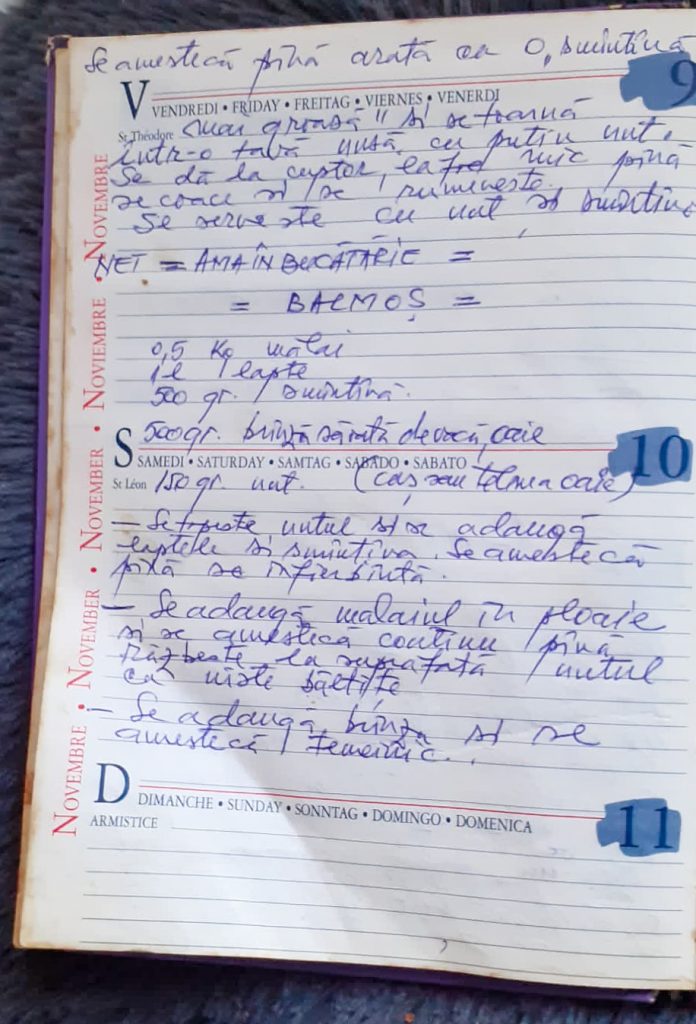 Se amestecă pînă arată ca o „smîntînă
V VENDREDI • FRIDAY • FREITAG • VIERNES • VENERDI 9
St Théodore mai groasă" și se toarnă
într-o tavă unsă cu puțin unt.
Se dă la cuptor, la foc mic pînă
se coace și se rumenește.
Se servește cu unt și smîntînă
NET = AMA ÎN BUCĂTĂRIE =
= BALMOȘ =
0,5 Kg mălai
1 l lapte
500 gr. smîntînă.
500 gr. brînză sărată de vacă, oaie
S SAMEDI • SATURDAY • SAMTAG • SABADO • SABATO 10
St Léon 150 gr. unt. (caș sau telemea oaie)
— Se topește untul și se adaugă
laptele și smîntîna. Se amestecă
pînă se înfierbîntă.
— Se adaugă mălaiul în ploaie
și se amestecă continuu pînă
răzbește la suprafață untul
ca niște băltițe
— Se adaugă brînza și se
amestecă temeinic..
D DIMANCHE • SUNDAY • SONNTAG • DOMINGO • DOMENICA 11
ARMISTICE
NOVEMBRE • NOVEMBER • NOVEMBER • NOVIEMBRE • NOVEMBRE